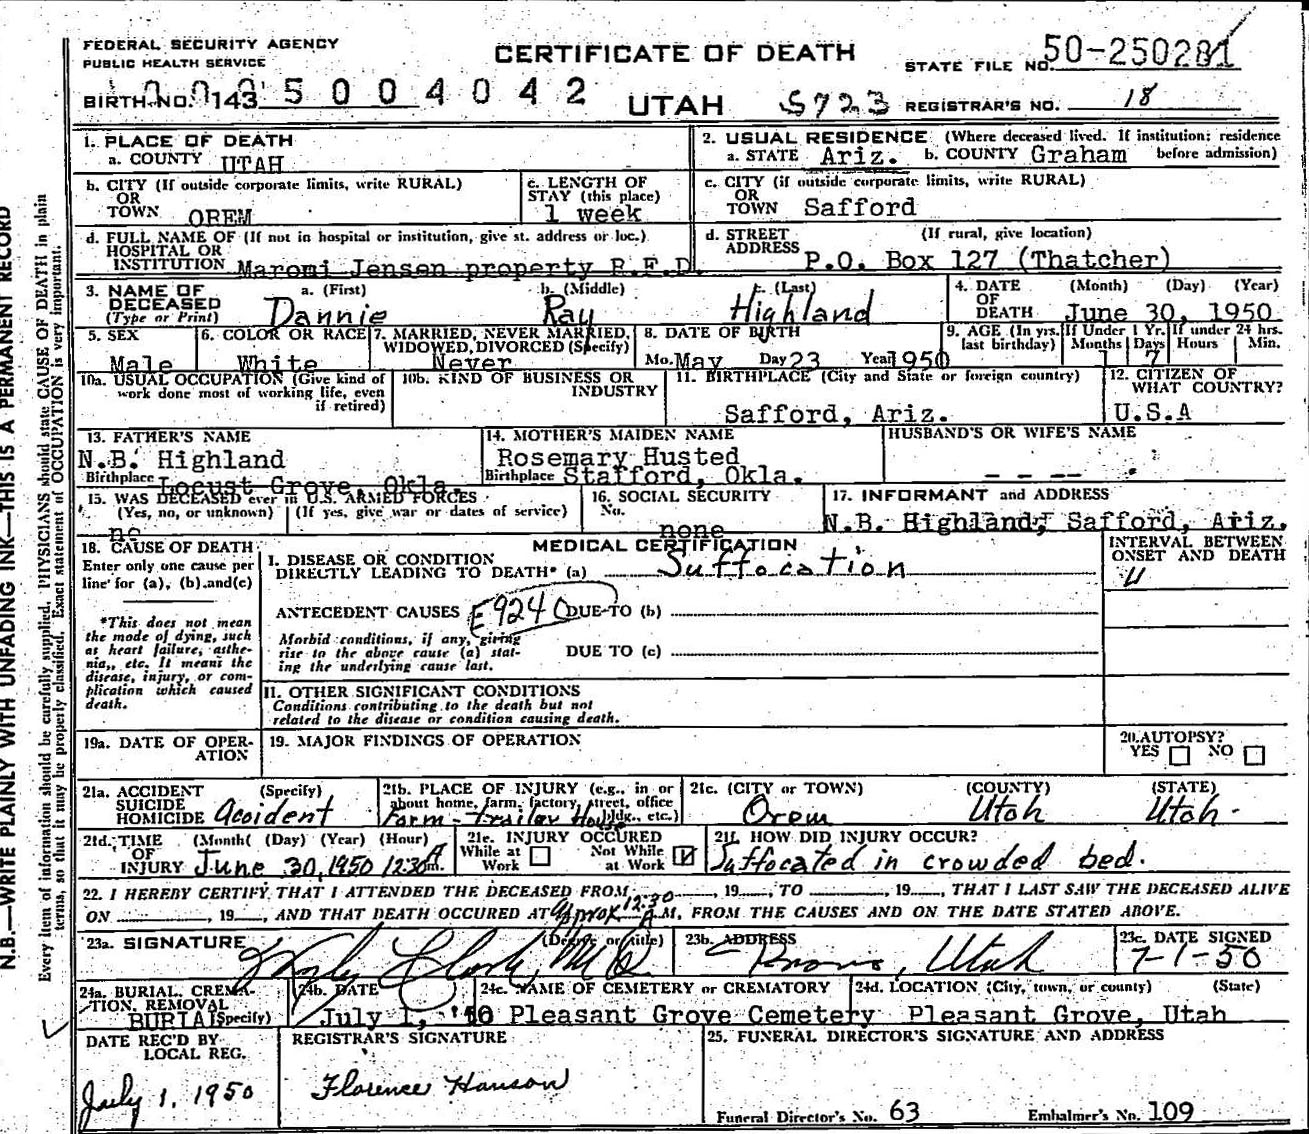 FEDERAL SECURITY AGENCY
PUBLIC HEALTH SERVICE
CERTIFICATE OF DEATH
STATE FILE NO. 50-250281
BIRTH NO. 143 5004042
UTAH S723 REGISTRAR'S NO. 18
1. PLACE OF DEATH
a. COUNTY UTAH
2. USUAL RESIDENCE (Where deceased lived. If institution: residence before admission)
a. STATE Ariz. b. COUNTY Graham
b. CITY (If outside corporate limits, write RURAL)
OR
TOWN OREM
c. LENGTH OF
STAY (this place)
1 week
c. CITY (if outside corporate limits, write RURAL)
OR
TOWN Safford
d. FULL NAME OF (If not in hospital or institution, give st. address or loc.)
HOSPITAL OR
INSTITUTION Maromi Jensen property R.F.D.
d. STREET (If rural, give location)
ADDRESS P.O. Box 127 (Thatcher)
3. NAME OF DECEASED (Type or Print)
a. (First) b. (Middle) c. (Last)
Dannie Ray Highland
4. DATE OF DEATH (Month) (Day) (Year)
June 30, 1950
5. SEX
Male
6. COLOR OR RACE
White
7. MARRIED, NEVER MARRIED,
WIDOWED, DIVORCED (Specify)
Never
8. DATE OF BIRTH
Mo. May Day 23 Year 1950
9. AGE (In yrs. last birthday) If Under 1 Yr. Months Days If under 24 hrs. Hours Min.
1 7
10a. USUAL OCCUPATION (Give kind of
work done most of working life, even
if retired)
10b. KIND OF BUSINESS OR
INDUSTRY
11. BIRTHPLACE (City and State or foreign country)
Safford, Ariz.
12. CITIZEN OF
WHAT COUNTRY?
U.S.A
13. FATHER'S NAME
N.B. Highland
Birthplace Locust Grove, Okla.
14. MOTHER'S MAIDEN NAME
Rosemary Husted
Birthplace Stafford, Okla.
HUSBAND'S OR WIFE'S NAME
15. WAS DECEASED ever in U.S. ARMED FORCES
(Yes, no, or unknown) (If yes, give war or dates of service)
no
16. SOCIAL SECURITY
No.
none
17. INFORMANT and ADDRESS
N.B. Highland, Safford, Ariz.
18. CAUSE OF DEATH
Enter only one cause per
line for (a), (b) and (c)
*This does not mean
the mode of dying, such
as heart failure, asthe-
nia, etc. It means the
disease, injury, or com-
plication which caused
death.
MEDICAL CERTIFICATION
I. DISEASE OR CONDITION
DIRECTLY LEADING TO DEATH* (a) Suffocation
ANTECEDENT CAUSES E9240 DUE TO (b)
Morbid conditions, if any, giving
rise to the above cause (a) stat-
ing the underlying cause last.
DUE TO (c)
II. OTHER SIGNIFICANT CONDITIONS
Conditions contributing to the death but not
related to the disease or condition causing death.
INTERVAL BETWEEN
ONSET AND DEATH
19a. DATE OF OPER-
ATION
19. MAJOR FINDINGS OF OPERATION
20. AUTOPSY?
YES NO
21a. ACCIDENT (Specify)
SUICIDE
HOMICIDE Accident
21b. PLACE OF INJURY (e.g., in or
about home, farm, factory, street, office
bldg., etc.)
Farm - trailer House
21c. (CITY or TOWN) (COUNTY) (STATE)
Orem Utah Utah
21d. TIME (Month) (Day) (Year) (Hour)
OF
INJURY June 30, 1950 12:30 A m.
21e. INJURY OCCURED
While at Work Not While at Work
21f. HOW DID INJURY OCCUR?
Suffocated in crowded bed.
22. I HEREBY CERTIFY THAT I ATTENDED THE DECEASED FROM , 19 , TO , 19 , THAT I LAST SAW THE DECEASED ALIVE
ON , 19 , AND THAT DEATH OCCURED AT Approx 12:30 A.M, FROM THE CAUSES AND ON THE DATE STATED ABOVE.
23a. SIGNATURE (Degree or title)
Clark, M D
23b. ADDRESS
Provo, Utah
23c. DATE SIGNED
7-1-50
24a. BURIAL, CREMA-
TION, REMOVAL
BURIAL (Specify)
24b. DATE
July 1, '50
24c. NAME OF CEMETERY or CREMATORY
Pleasant Grove Cemetery
24d. LOCATION (City, town, or county) (State)
Pleasant Grove, Utah
DATE REC'D BY
LOCAL REG.
July 1, 1950
REGISTRAR'S SIGNATURE
Florence Hanson
25. FUNERAL DIRECTOR'S SIGNATURE AND ADDRESS
Funeral Director's No. 63 Embalmer's No. 109
N.B.—WRITE PLAINLY WITH UNFADING INK—THIS IS A PERMANENT RECORD
Every item of information should be carefully supplied. PHYSICIANS should state CAUSE OF DEATH in plain
terms, so that it may be properly classified. Exact statement of OCCUPATION is very important.